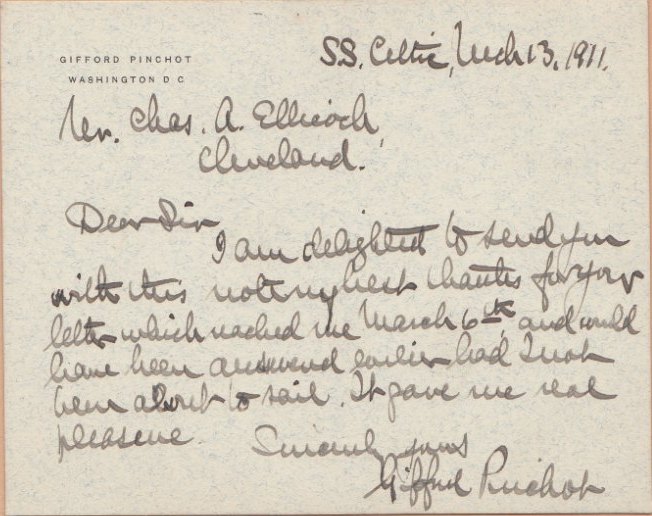 GIFFORD PINCHOT
WASHINGTON D C
S.S. Celtic, Mch 13, 1911.
Mr. Chas. A.
Cleveland.
Dear Sir
I am delighted to send you
with this note my best thanks for your
letter which reached me March 6th, and would
have been answered earlier had I not
been about to sail. It gave me real
pleasure.
Sincerely yours
Gifford Pinchot